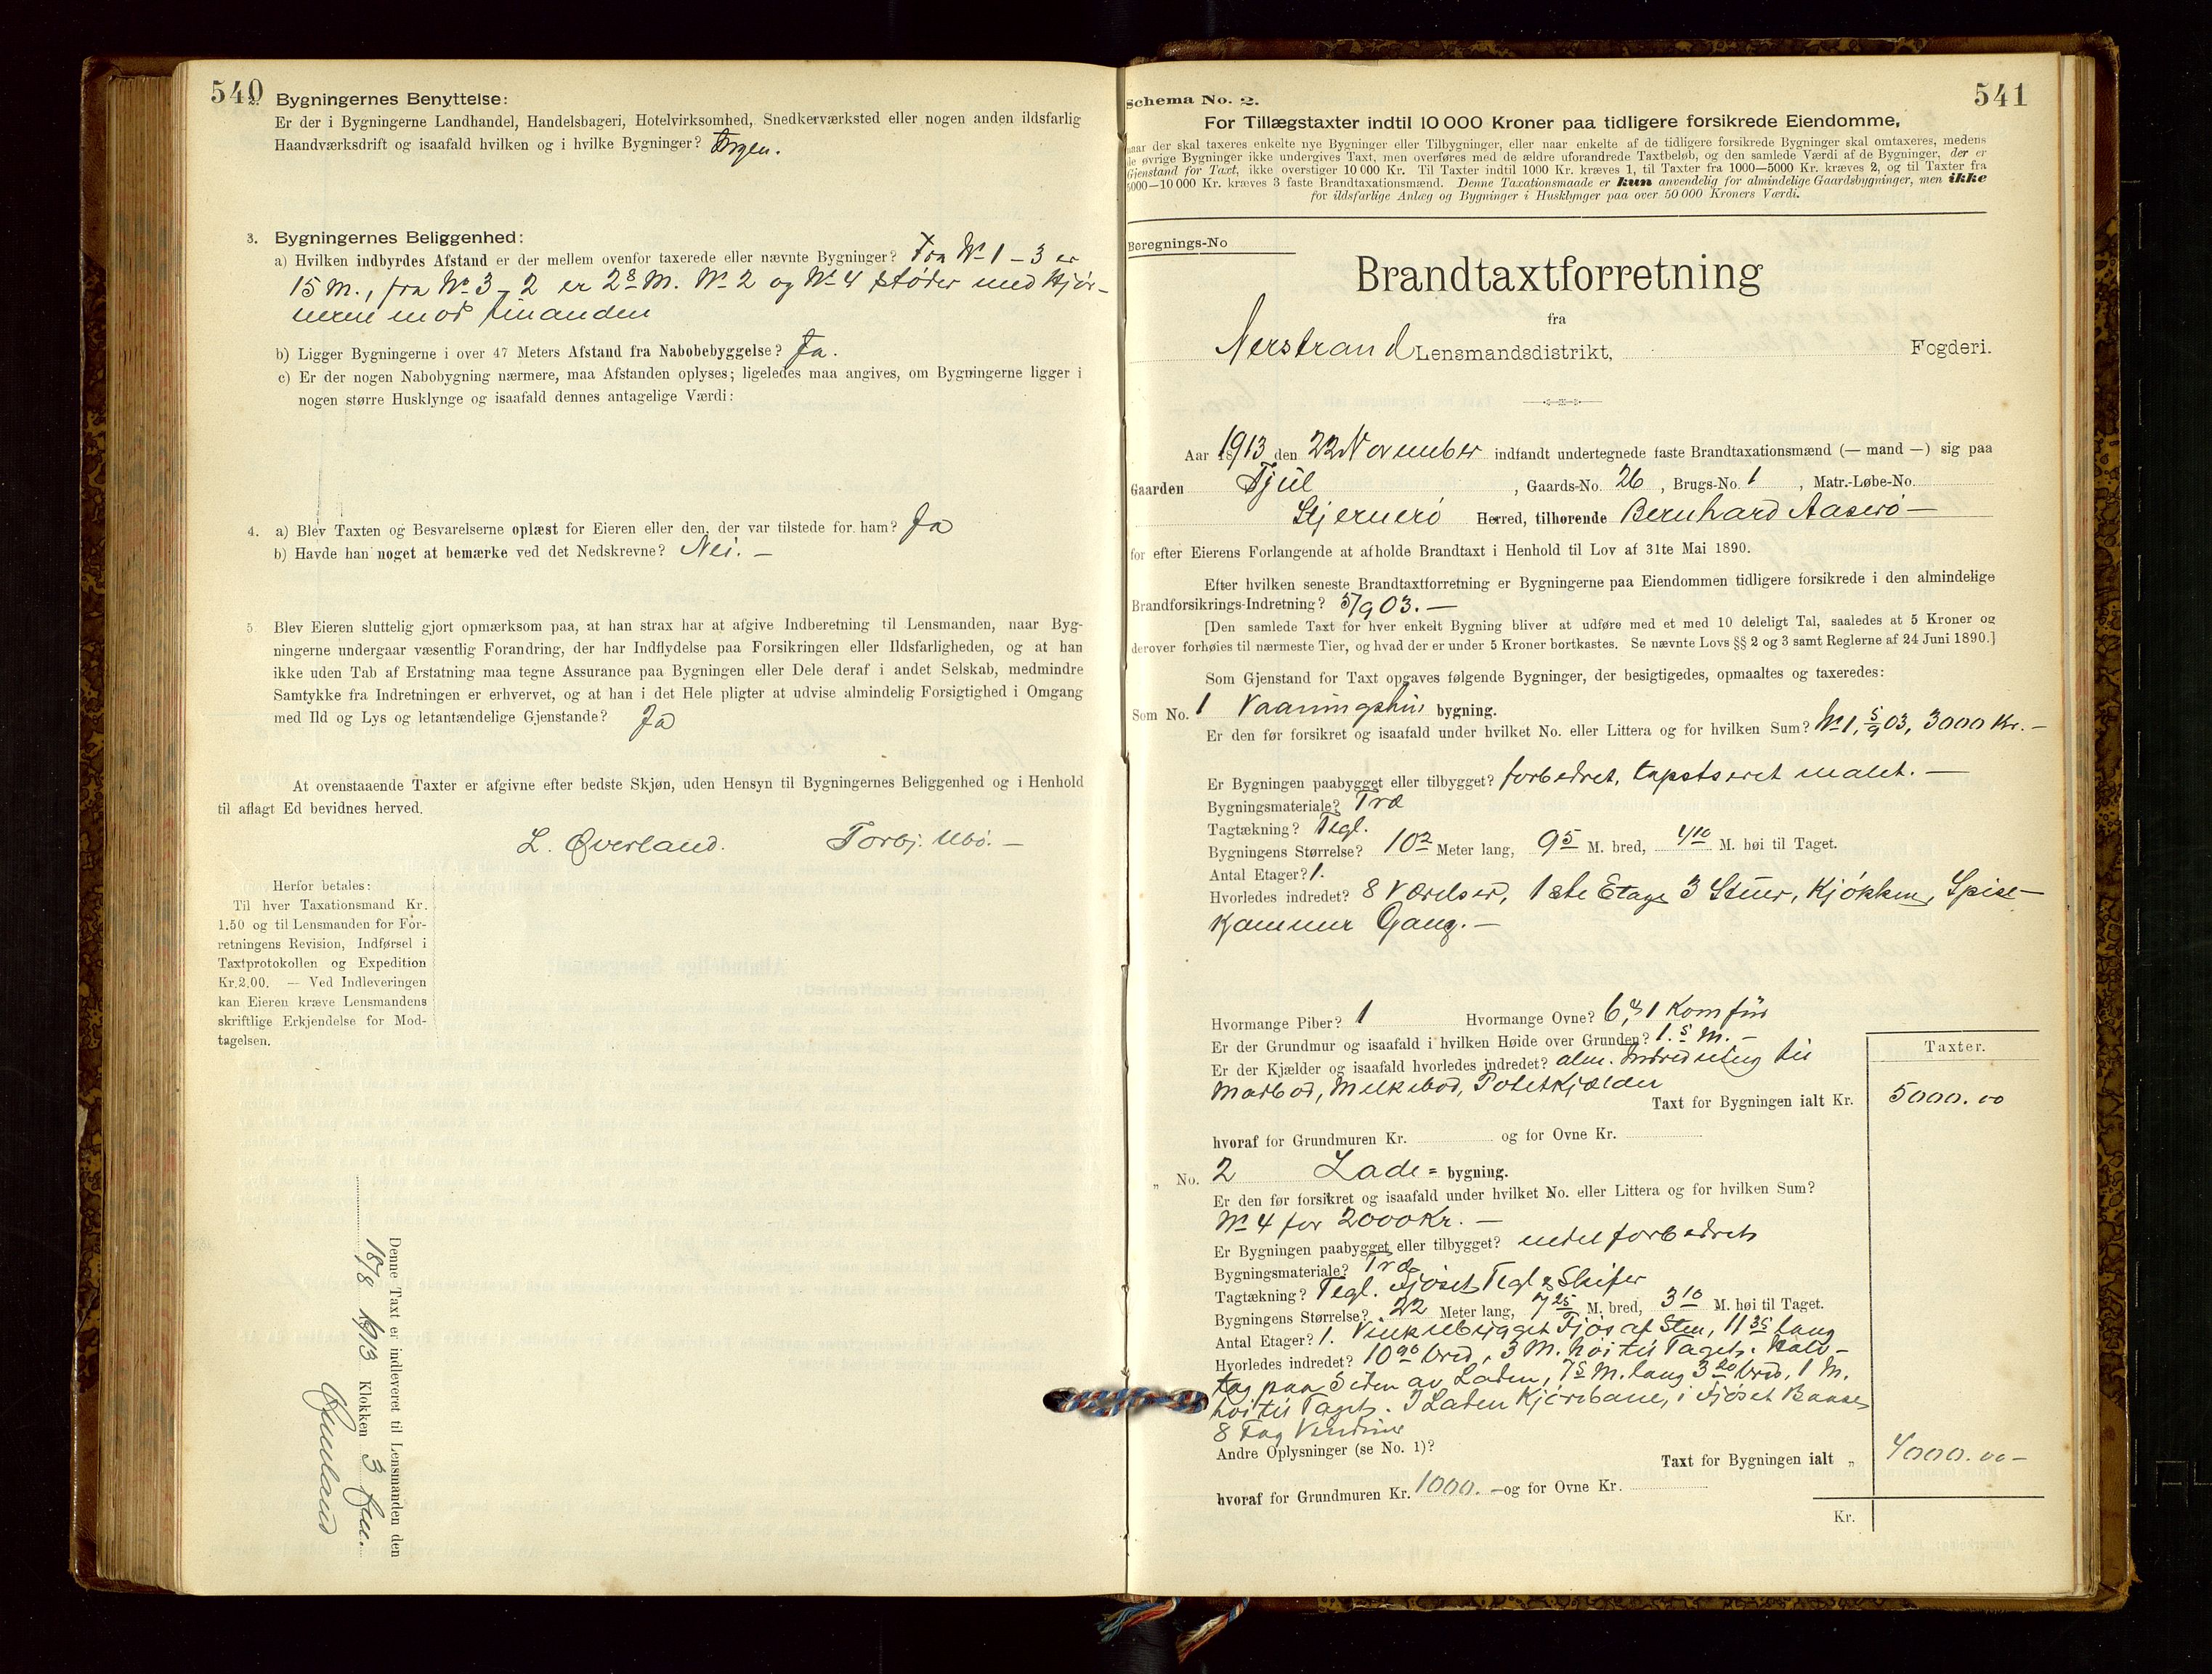 540
2. Bygningernes Benyttelse:
Er der i Bygningerne Landhandel, Handelsbageri, Hotelvirksomhed, Snedkerværksted eller nogen anden ildsfarlig
Haandværksdrift og isaafald hvilken og i hvilke Bygninger? Ingen.
3. Bygningernes Beliggenhed:
a) Hvilken indbyrdes Afstand er der mellem ovenfor taxerede eller nævnte Bygninger? Fra No 1 – 3 er
15 M., fra No 3 – 2 er 2 8 M. No 2 og No 4 støder med Hjør-
nerne mod hinanden
b) Ligger Bygningerne i over 47 Meters Afstand fra Nabobebyggelse? Ja.
c) Er der nogen Nabobygning nærmere, maa Afstanden oplyses; ligeledes maa angives, om Bygningerne ligger i
nogen større Husklynge og isaafald dennes antagelige Værdi:
4. a) Blev Taxten og Besvarelserne oplæst for Eieren eller den, der var tilstede for ham? Ja
b) Havde han noget at bemærke ved det Nedskrevne? Nei. –
5. Blev Eieren sluttelig gjort opmærksom paa, at han strax har at afgive Indberetning til Lensmanden, naar Byg-
ningerne undergaar væsentlig Forandring, der har Indflydelse paa Forsikringen eller Ildsfarligheden, og at han
ikke uden Tab af Erstatning maa tegne Assurance paa Bygningen eller Dele deraf i andet Selskab, medmindre
Samtykke fra Indretningen er erhvervet, og at han i det Hele pligter at udvise almindelig Forsigtighed i Omgang
med Ild og Lys og letantændelige Gjenstande? Ja
At ovenstaaende Taxter er afgivne efter bedste Skjøn, uden Hensyn til Bygningernes Beliggenhed og i Henhold
til aflagt Ed bevidnes herved.
L. Øverland. Torbj. Ubø. –
Herfor betales:
Til hver Taxationsmand Kr.
1.50 og til Lensmanden for For-
retningens Revision, Indførsel i
Taxtprotokollen og Expedition
Kr. 2.00. — Ved Indleveringen
kan Eieren kræve Lensmandens
skriftlige Erkjendelse for Mod-
tagelsen.
Denne Taxt er indleveret til Lensmanden den
18/8 1913 Klokken 3
541
Schema No. 2.
For Tillægstaxter indtil 10 000 Kroner paa tidligere forsikrede Eiendomme,
naar der skal taxeres enkelte nye Bygninger eller Tilbygninger, eller naar enkelte af de tidligere forsikrede Bygninger skal omtaxeres, medens
de øvrige Bygninger ikke undergives Taxt, men overføres med de ældre uforandrede Taxtbeløb, og den samlede Værdi af de Bygninger, der er
Gjenstand for Taxt, ikke overstiger 10 000 Kr. Til Taxter indtil 1000 Kr. kræves 1, til Taxter fra 1000—5000 Kr. kræves 2, og til Taxter fra
5000—10 000 Kr. kræves 3 faste Brandtaxationsmænd. Denne Taxationsmaade er kun anvendelig for almindelige Gaardsbygninger, men ikke
for ildsfarlige Anlæg og Bygninger i Husklynger paa over 50 000 Kroners Værdi.
Beregnings-No
Brandtaxtforretning
fra
Nerstrand Lensmandsdistrikt, Fogderi.
Aar 1913 den 22 November indfandt undertegnede faste Brandtaxationsmænd (— mand —) sig paa
Gaarden Tjul , Gaards-No. 26 , Brugs-No. 1 , Matr.-Løbe-No.
Sjernerø Herred, tilhørende Bernhard Aaserø –
for efter Eierens Forlangende at afholde Brandtaxt i Henhold til Lov af 31te Mai 1890.
Efter hvilken seneste Brandtaxtforretning er Bygningerne paa Eiendommen tidligere forsikrede i den almindelige
Brandforsikrings-Indretning? 5/9 03. –
[Den samlede Taxt for hver enkelt Bygning bliver at udføre med et med 10 deleligt Tal, saaledes at 5 Kroner og
derover forhøies til nærmeste Tier, og hvad der er under 5 Kroner bortkastes. Se nævnte Lovs §§ 2 og 3 samt Reglerne af 24 Juni 1890.]
Som Gjenstand for Taxt opgaves følgende Bygninger, der besigtigedes, opmaaltes og taxeredes:
Som No. 1 Vaaningshus bygning.
Er den før forsikret og isaafald under hvilket No. eller Littera og for hvilken Sum? No 1, 5/9 03, 3000 Kr. –
Er Bygningen paabygget eller tilbygget? forbedret, tapetseret malet. –
Bygningsmateriale? Træ
Tagtækning? Tegl.
Bygningens Størrelse? 10 2 Meter lang, 9 5 M. bred, 4 10 M. høi til Taget.
Antal Etager? 1.
Hvorledes indredet? 8 Værelser, 1ste Etage 3 Stuer, Kjøkken, Spise-
kammer Gang. –
Hvormange Piber? 1 Hvormange Ovne? 6, & 1 Komfur
Er der Grundmur og isaafald i hvilken Høide over Grunden? 1.5 M. –
Er der Kjælder og isaafald hvorledes indredet? alm. Indredning til
Matbod, Melkebod, Potetkjælder
Taxter.
Taxt for Bygningen ialt Kr. 5000.00
hvoraf for Grundmuren Kr. og for Ovne Kr.
„ No. 2 Lade= bygning.
Er den før forsikret og isaafald under hvilket No. eller Littera og for hvilken Sum?
No 4 for 2000 Kr. –
Er Bygningen paabygget eller tilbygget? forbedret
Bygningsmateriale? Træ
Tagtækning? Tegl. Fjøset Tegl & Skifer
Bygningens Størrelse? 22 Meter lang, 7 25 M. bred, 3 10 M. høi til Taget.
Antal Etager? 1. Vinkelbygget Fjøs af Sten, 11 35 lang
Hvorledes indredet? 10 90 bred, 3 M. høi til Taget. Halv-
tag paa Siden av Laden, 7 5 M. lang 3 20 bred, 1 M.
høi til Taget. I Laden Kjørebane, i Fjøset Baase
8 Fag Vinduer
Andre Oplysninger (se No. 1)?
Taxt for Bygningen ialt „ 4000.00 –
hvoraf for Grundmuren Kr. 1000. – og for Ovne Kr.
Kr.